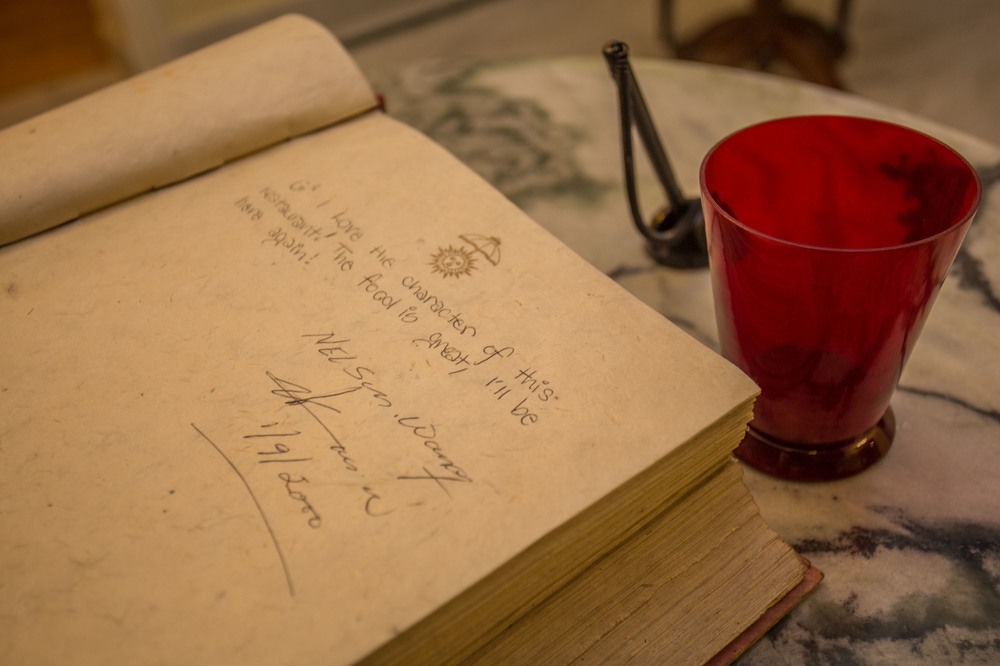 G! I love the character of this
restaurant! The food is great, I'll be
here again!
NELSON. WANG
1/9/2000